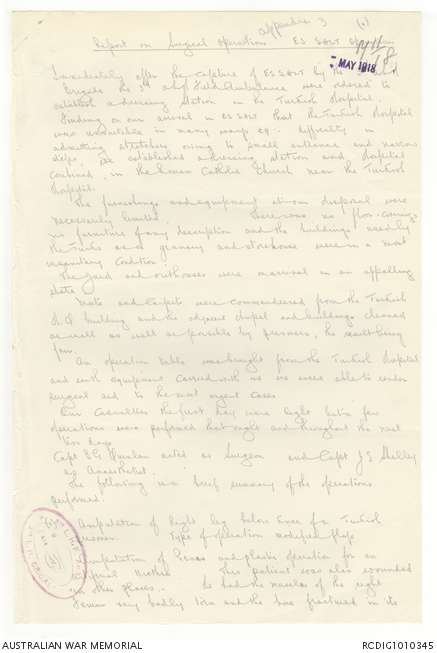 appendix 3
Report on Surgical operations ES SALT
MAY 1918
Immediately after the capture of ES SALT by the
Brigade the 3rd Field Ambulance were ordered to
establish a dressing station in the Turkish Hospital.
Finding on our arrival in ES SALT that the Turkish Hospital
was unsuitable in many ways eg. difficulty in
admitting stretchers owing to small entrance and narrow
steps, we established a dressing station and hospital
combined, in the Roman Catholic Church near the Turkish
Hospital.
The furnishings and equipment at our disposal were
necessarily limited. There was no floor covering
no furniture of any description and the buildings used by
the Turks as a granary and storehouse were in a most
insanitary condition.
The yard and outhouses were in an appalling
state
Mats and carpets were commandeered from the Turkish
H.Q building and the adjacent chapel and buildings cleaned
as well as possible by prisoners, the result being
fair.
An operation table was brought from the Turkish hospital
and with equipment carried with us we were able to render
surgical aid to the most urgent cases
Our casualties the first day were light but a few
operations were performed that night and throughout the next
two days
Capt acted as Surgeon and Capt J S Shelley
as Anaesthetist.
The following is a brief summary of the operations
performed.
Amputation of Right leg below knee for Turkish
prisoner. Type of operation modified flaps
Amputation of and plastic operation for an
This patient was also wounded
in other places. he had the muscles of the right
very badly torn and the bone fractured in its
AUSTRALIAN WAR MEMORIAL
RCDIG1010345